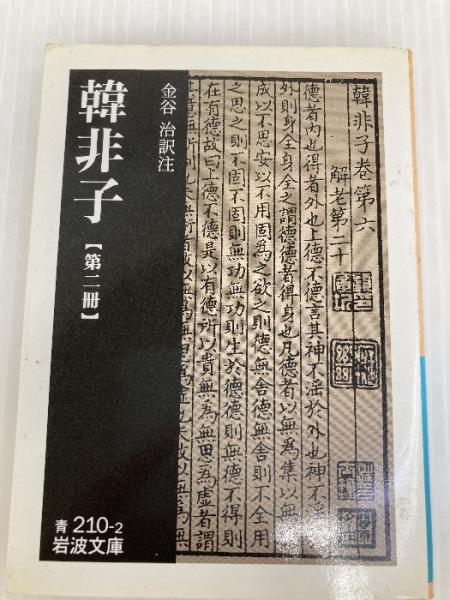 韓非子
【第二冊】
金谷 治訳注
韓非子卷第六
解老第二十
德者內也得者外也上德不德言其神不淫於外也神不淫
外則身全身全之謂德德者得身也凡德者以無為集以無
成以不思安以不用固為之欲之則德無舍德無舍則不全用
之思之則不固不固則無功無功則生於德德則無得則
在有德故曰上德不德是以有德所以貴無為無思為虛者謂
青 210-2
岩波文庫